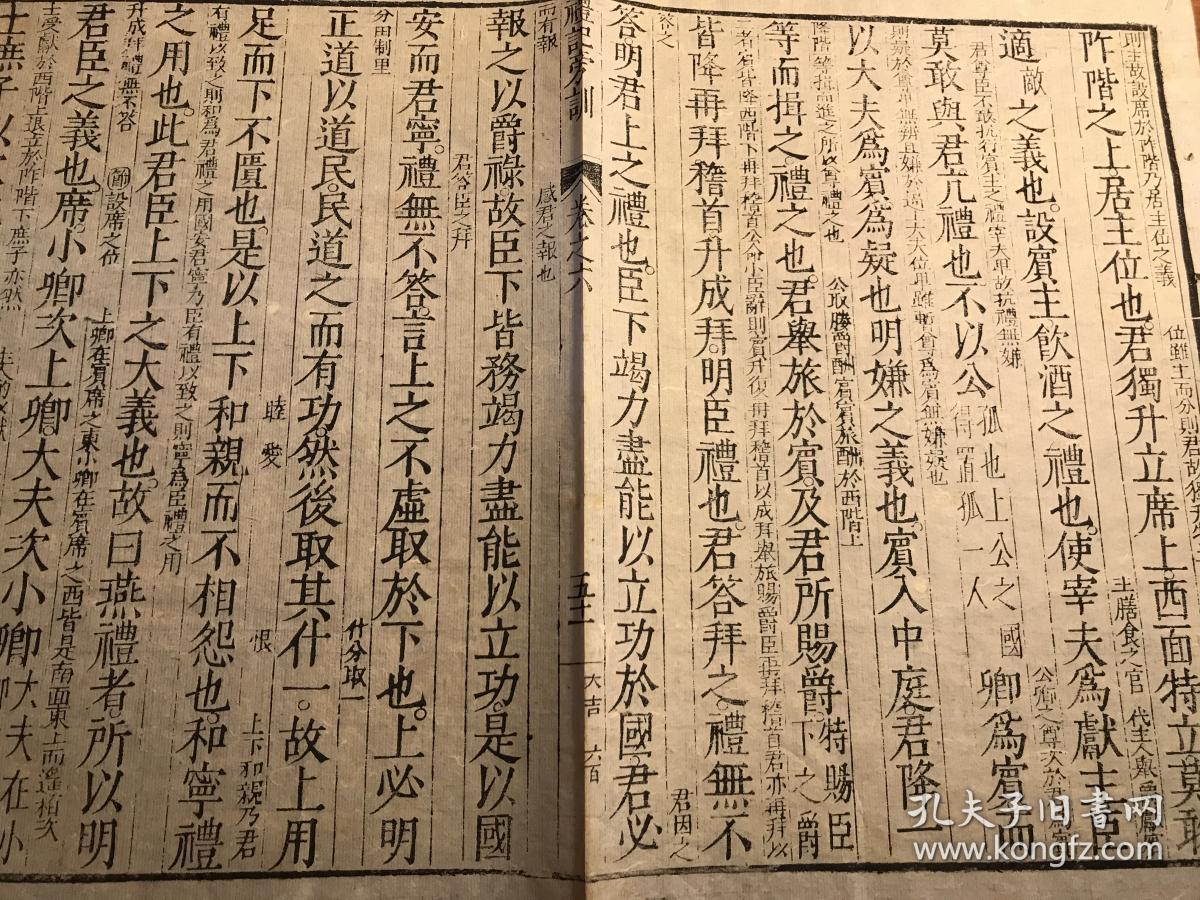 則主故設席於阼階乃居主位之義
阼階之上居主位也君獨升立席上西面特立莫敢
適敵之義也設賓主飲酒之禮也使宰夫爲獻主臣
主膳食之官
君尊臣不敢抗行賓主之禮宰夫卑故抗禮無嫌
莫敢與君亢禮也不以公孤也上公之國得置孤一人卿爲賓而
以大夫爲賓爲疑也明嫌之義也賓入中庭君降一
公取媵爵酬賓賓旅酬於西階上
等而揖之禮之也君舉旅於賓及君所賜爵特賜臣下之爵
皆降再拜稽首升成拜明臣禮也君答拜之禮無不
答之
君因之
答明君上之禮也臣下竭力盡能以立功於國君必
禮記旁訓 卷之六 五十 大吉 六百
而有報
感君之報也
報之以爵祿故臣下皆務竭力盡能以立功是以國
君答臣之拜
安而君寧禮無不答言上之不虛取於下也上必明
分田制里
什分取一
正道以道民民道之而有功然後取其什一故上用
睦愛
恨
上下和親乃君
足而下不匱也是以上下和親而不相怨也和寧禮
有禮以致之則和爲君禮之用國安君寧乃臣有禮以致之則寧爲臣禮之用
之用也此君臣上下之大義也故曰燕禮者所以明
升成拜禮無不答
節設席之位
上卿在賓席之東小卿在賓席之西皆是南面東上而遙相次
君臣之義也席小卿次上卿大夫次小卿大夫在小
士受獻於西階上退立於阼階下庶子亦然
士庶子以